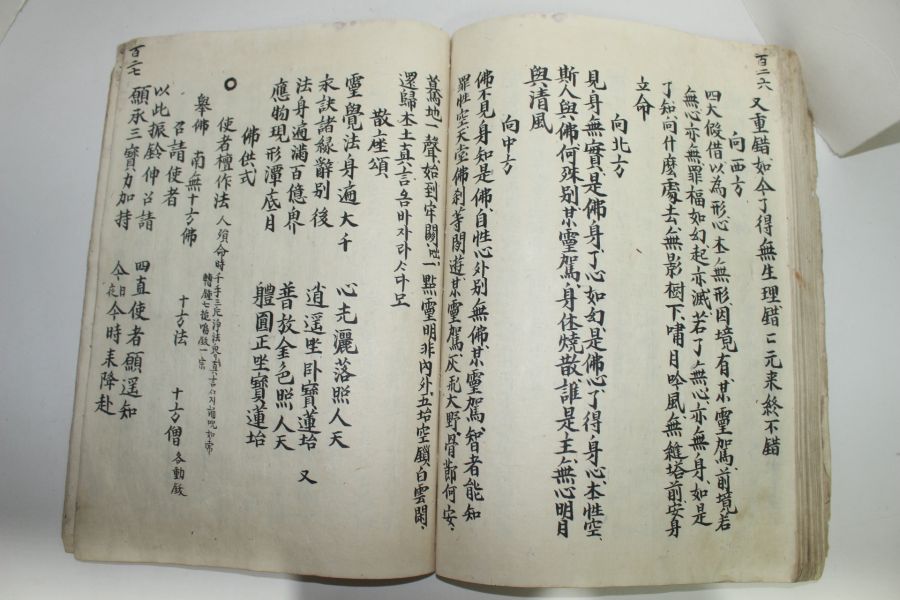 百二六
又重錯如今了得無生理錯〻元來終不錯
向西方
四大假借以為形心本無形因境有某靈駕前境若
無心亦無罪福如幻起亦滅若了無心亦無身如是
了知向什麽處去無影樹下嘯月吟風無縫塔前安身
立命
向北方
見身無實是佛身了心如幻是佛心了得身心本性空
斯人與佛何殊別某靈駕身体燒散誰是主無心明月
與清風
向中方
佛不見身知是佛自性心外別無佛某靈駕智者能知
罪性空天堂佛刹等閑遊某靈駕灰飛大野骨節何安
驀地一聲始到牢關咄一點靈明非內外五坮空鎖白雲閑
還歸本土真言옴바자라사다모
散座頌
靈覺法身遍大千 心光灑落照人天
永訣諸緣辭別後 逍遥坐卧寶蓮坮 又
法身遍滿百億界 普放金色照人天
應物現形潭底月 軆圓正坐寶蓮坮
佛供式
使者檀作法 人殞命時千手三 淨法界真言
轉鐘七 鳴鈸一宗
擧佛 南無十方佛 十方法 十方僧 各動鈸
召請使者
以此振鈴伸召請 四直使者願遥知
願承三寶力加持 今日今夜今時來降赴
百二七